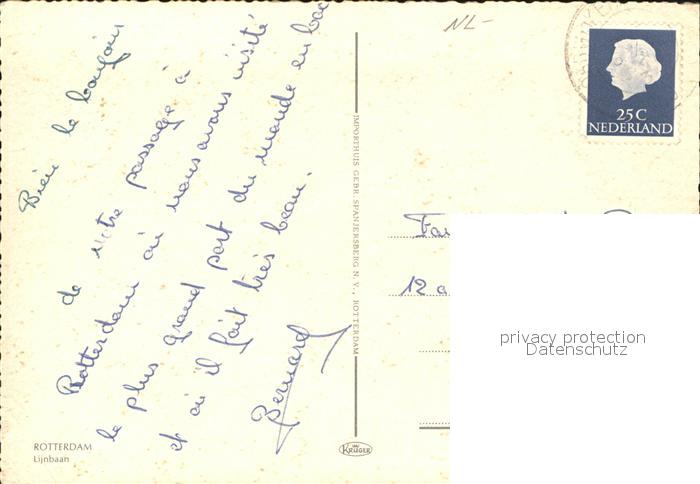 Bien le bonjour
de notre passage à
Rotterdam où nous avons visité
le plus grand port du monde en bac
et où il fait très beau.
Bernard
ROTTERDAM
Lijnbaan
IMPORTHUIS GEBR. SPANJERSBERG N.V., ROTTERDAM
KRÜGER
NL-
25C
NEDERLAND
12 a
privacy protection
Datenschutz